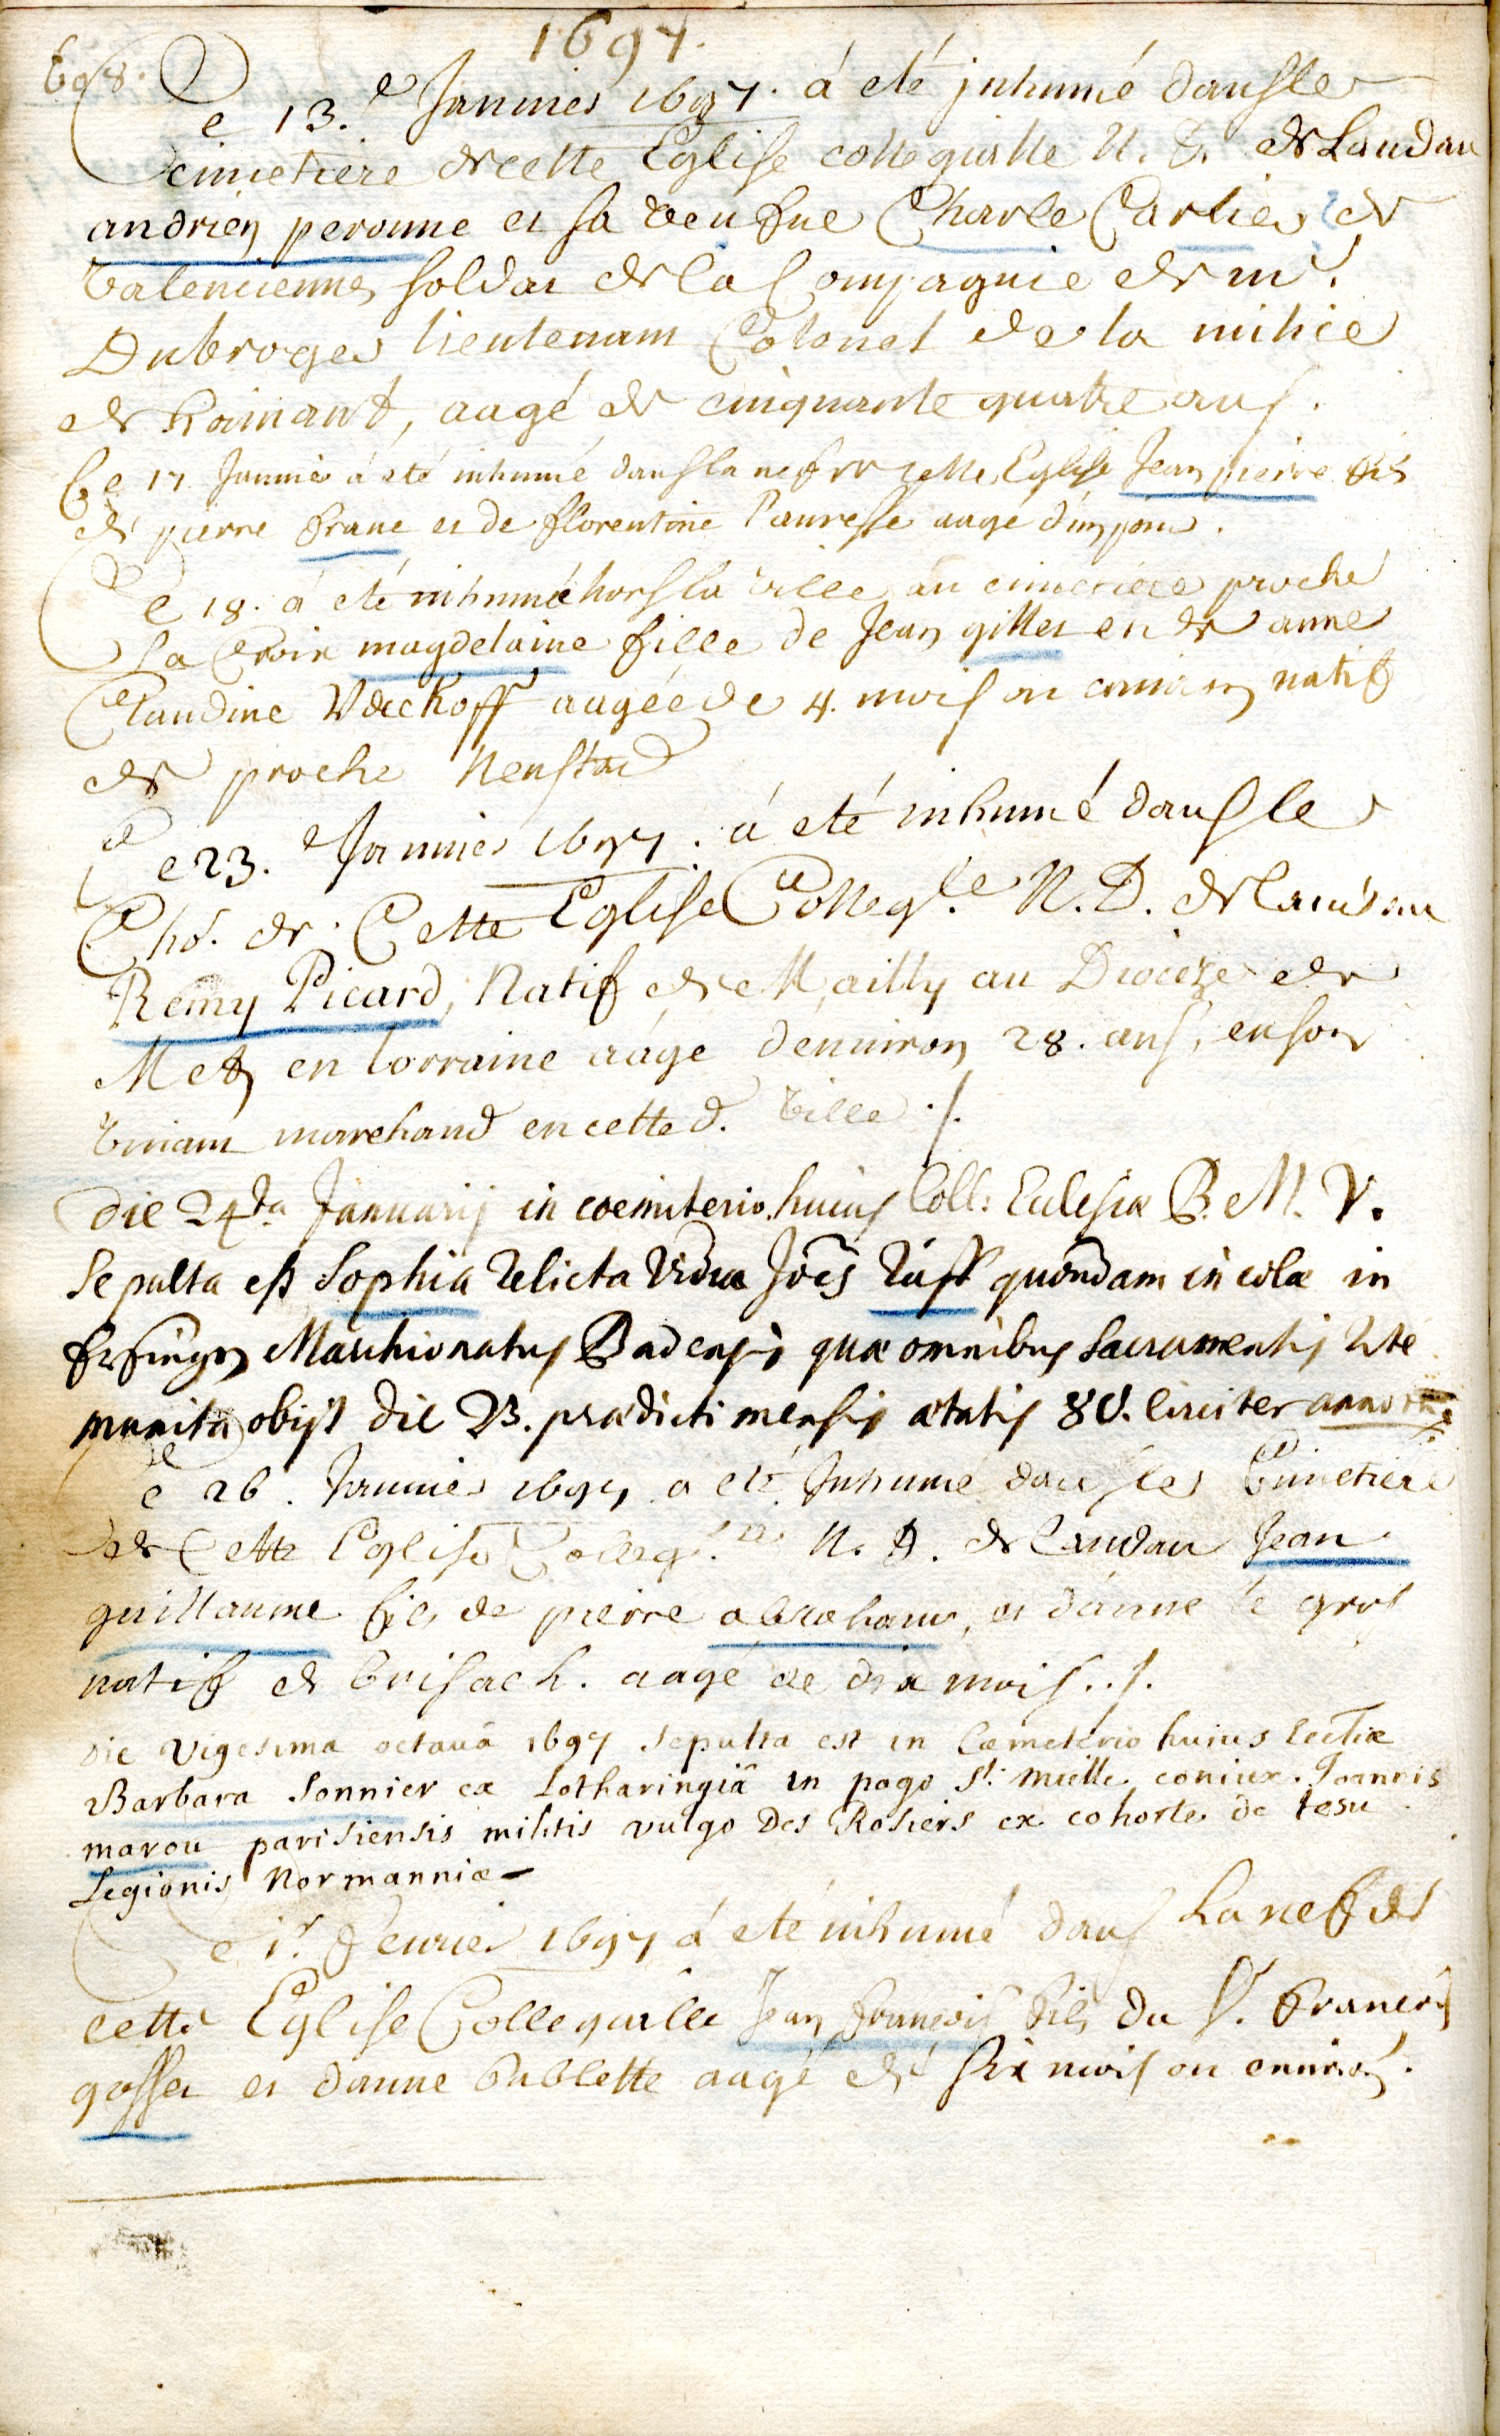 1697.
698.
Le 13.e Januier 1697. á eté jnhumé dans le
cimetiere de cette Eglise collegialle N. D. de Landau
andrien peronne et sa Charle Carlier de
Valencienne soldat de la Compagnie de mr.
Dubroges lieutenant Colonel de la milice
de hainaut, aagé de cinquante quatre ans.
Le 17 Januier á eté inhumé dans la nef de cette Eglise Jean pierre fils
de pierre franc et de florentine aagé d'un jour.
Le 18. á eté inhumé hors la ville au cimetiere proche
la Croix magdelaine fille de Jean gilles et de anne
Claudine aagée de 4. mois ou enuiron natif
de proche Neustad
Le 23.e Januier 1697. á eté inhumé dans le
Chr. de Cette Eglise Collegle. N. D. de Landau
Remy Picard, Natif de Mailly au Diocèze de
Metz en lorraine aágé d'enuiron 28. ans, en son
viuant marchand en cette d. Ville ./.
Die 24ta Januarij in coemiterio huius Coll: Eclesiæ B. M. V.
Sepulta est Sophia relicta Vidua Jois Ruff quondam incolæ in
Marchionatus Badensis quæ omnibus Sacramentis rite
munita obijt die 23. prædicti mensis ætatis 80. circiter annorum
Le 26. Januier 1697 a eté Inhumé dans les Cimetiere
de Cette Eglise Collegle. N. D. de Landau Jean
guillaume fils de pierre abraham, et d'anne le gros
natif de brisach. aagé de dix mois ../.
Die vigesima octauâ 1697 sepulta est in Cœmeterio huius Ecctiæ
Barbara Sonnier ex Lotharingiâ in pago St. mielle coniux Joannis
marou parisiensis militis vulgo Des Rosiers ex cohorte de Jesu
Legionis Normanniæ -
Le 1r. feurier 1697 á eté inhumé dans La nef de
cette Eglise Collegialle Jean francois fils du Sr. francois
gosset et d'anne bublette aagé de six mois ou enuiron.